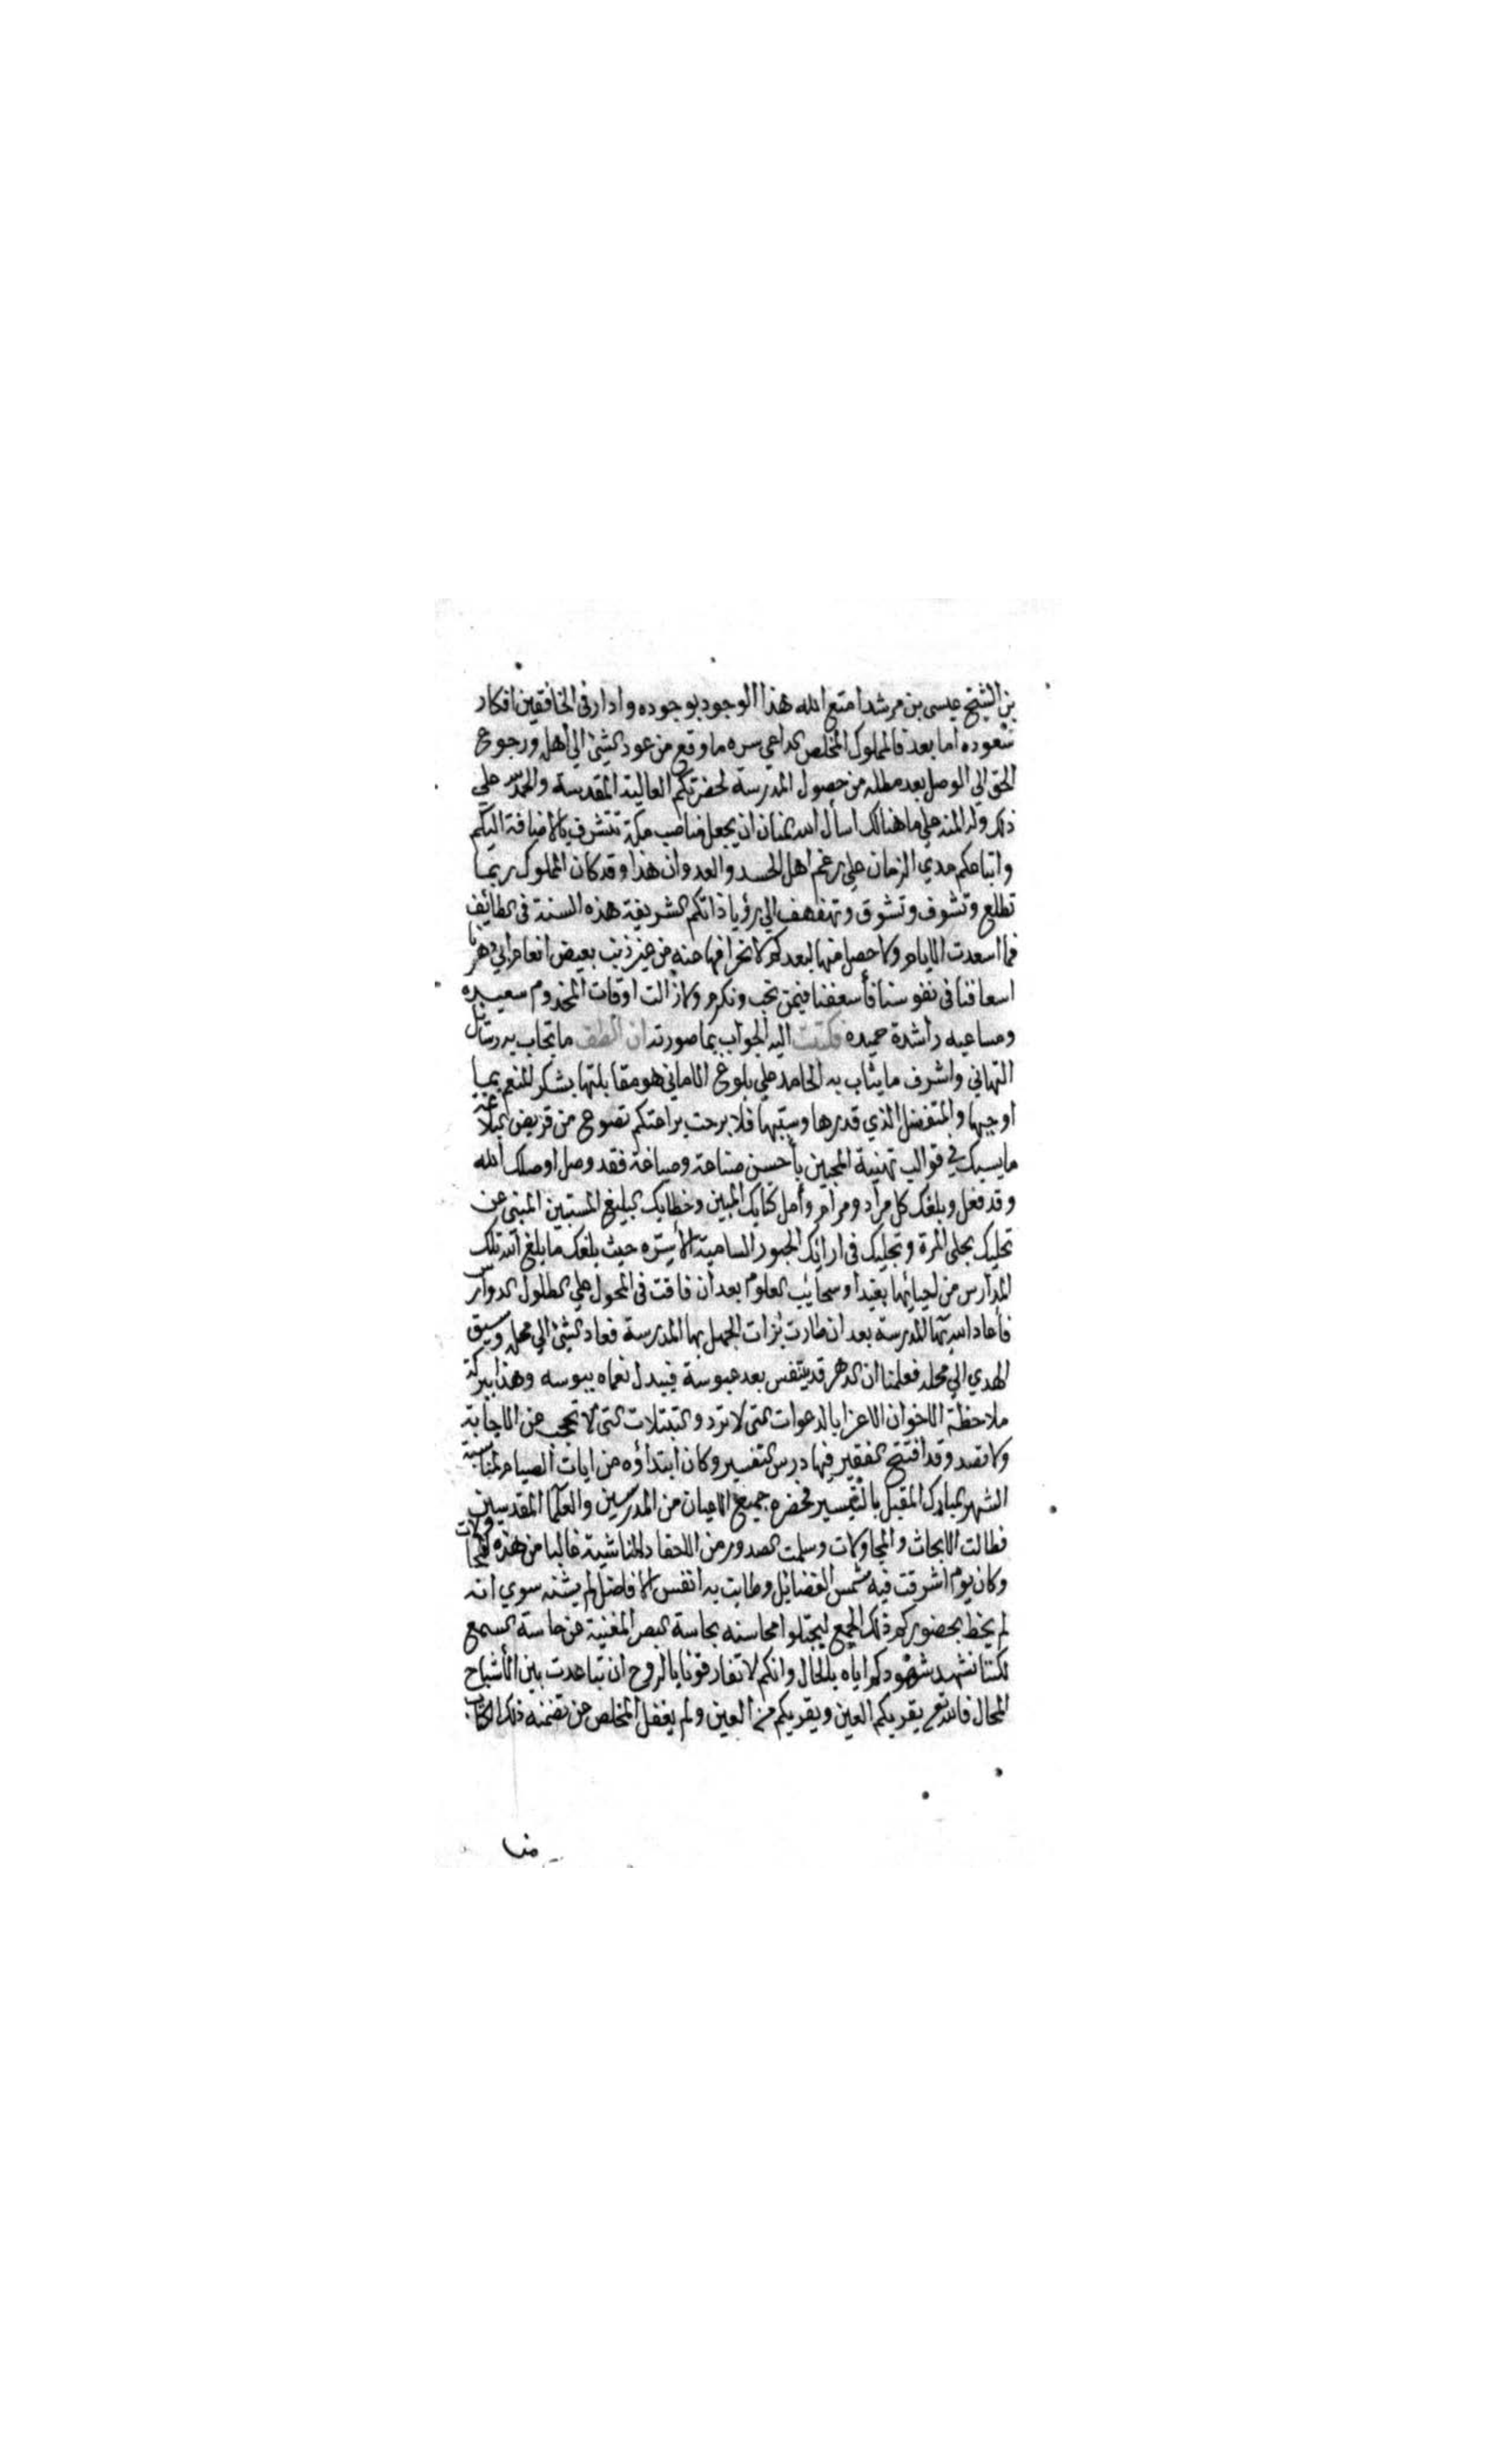 بن الشيخ عيسى بن مرشد امتع الله هذا الوجود بوجوده وادار في الخافقين افكار
سعوده أما بعد فالمملوك المخلص الداعي سره ما وقع من عود الشئ الي أهله ورجوع
الحق الي الوصل بعد مطله من حصول المدرسة لحضرتكم العالية المقدسة والحمد لله علي
ذلك وله المنه علي ما هنالك اسأل الله المنان ان يجعل مناصب مكة تتشرف بالاضافة اليكم
واتباعكم مدي الزمان علي رغم اهل الحسد والعدوان هذا وقد كان المملوك ربما
تطلع وتشوف وتشوق وتهفهف الي رؤيا ذاتكم الشريفة هذه السنة في الطائف
فما اسعدت الايام ولا حصل منها لبعدكم لانحرافها عنه من غير ذنب بعض انعام ابي دهرنا
اسعافنا في نفوسنا فأسعفنا فيمن نحب ونكرم ولا زالت اوقات المخدوم سعيده
ومساعيه راشدة حميده فكتبت اليه الجواب بما صورته ان الطف ما تجاب به رسائل
التهاني واشرف ما يثاب به الحامد علي بلوغ الاماني هو مقابلتها بشكر المنعم بما
اوجبها والمتفضل الذي قدرها وسببها فلا برحت براعتكم تصوغ من قريض البلاغة
ما يسبك في قوالب تهنية المحبين بأحسن صناعة وصياغة فقد وصل اوصلك الله
وقد فعل وبلغك كل مراد ومرام وأمل كتابك المبين وخطابك البليغ المستبين المنبى عن
تحليك بحلى المسرة وتجليك في ارائك الحبور السامية الأسره حيث بلغك ما بلغ الله تلك
المدارس من احيائها بغيدا وسحائب العلوم بعد أن فاقت في المحول علي الطلول الدوارس
فأعاد الله بها المدرسة بعد ان طارت بزات الجهل بها المدرسة فعاد الشئ الي محله وسيق
الهدي الي محله فعلمنا ان الدهر قد يتنفس بعد عبوسة فيبدل نعماه ببوسه وهذا ببركة
ملاحظة الاخوان الاعزا بالدعوات التي لا ترد والتبتلات التي لا تحجب عن الاجابة
ولا تصد وقد افتتح الفقير فيها درس التفسير وكان ابتداؤه من ايات الصيام لمناسبة
الشهر المبارك المقبل بالتيسير فحضره جميع الاعيان من المدرسين والعلما المقدسين
فطالت الابحاث والمجاولات وسلمت الصدور من الاحقاد الناشية غالبا من هذه المحاولات
وكان يوم اشرقت فيه شمس الفضايل وطابت به انفس الافاضل لم يشنه سوي انه
لم يحظ بحضوركم ذلك الجمع ليجتلوا محاسنه بحاسة البصر المغنية عن حاسة السمع
لكننا نشهد شهودكم اياه بالحال وانكم لا تفارقونا بالروح ان تباعدت بين الأشباح
المحال فالله تع يقر بكم العين ويقربكم من العين ولم يغفل المخلص عن تضمنه ذلك الكتاب
منا